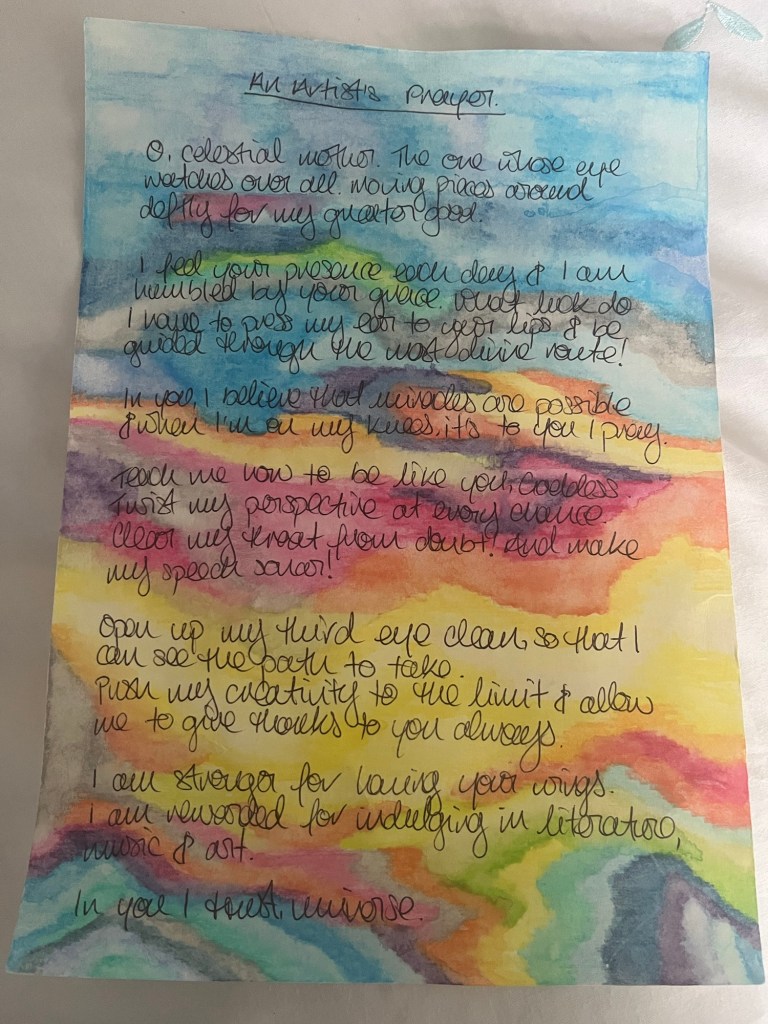 An Artist's Prayer.
O, celestial mother. The one whose eye
watches over all. Moving pieces around
deftly for my greater good.
I feel your presence each day & I am
humbled by your grace. What luck do
I have to press my ear to your lips & be
guided through the most divine route!
In you, I believe that miracles are possible
& when I'm on my knees, it's to you I pray.
Teach me how to be like you, Goddess.
Twist my perspective at every chance.
Clear my throat from doubt! And make
my speech soar!
Open up my third eye clean, so that I
can see the path to take.
Push my creativity to the limit & allow
me to give thanks to you always.
I am stronger for having your wings.
I am rewarded for indulging in literature,
music & art.
In you I trust, universe.